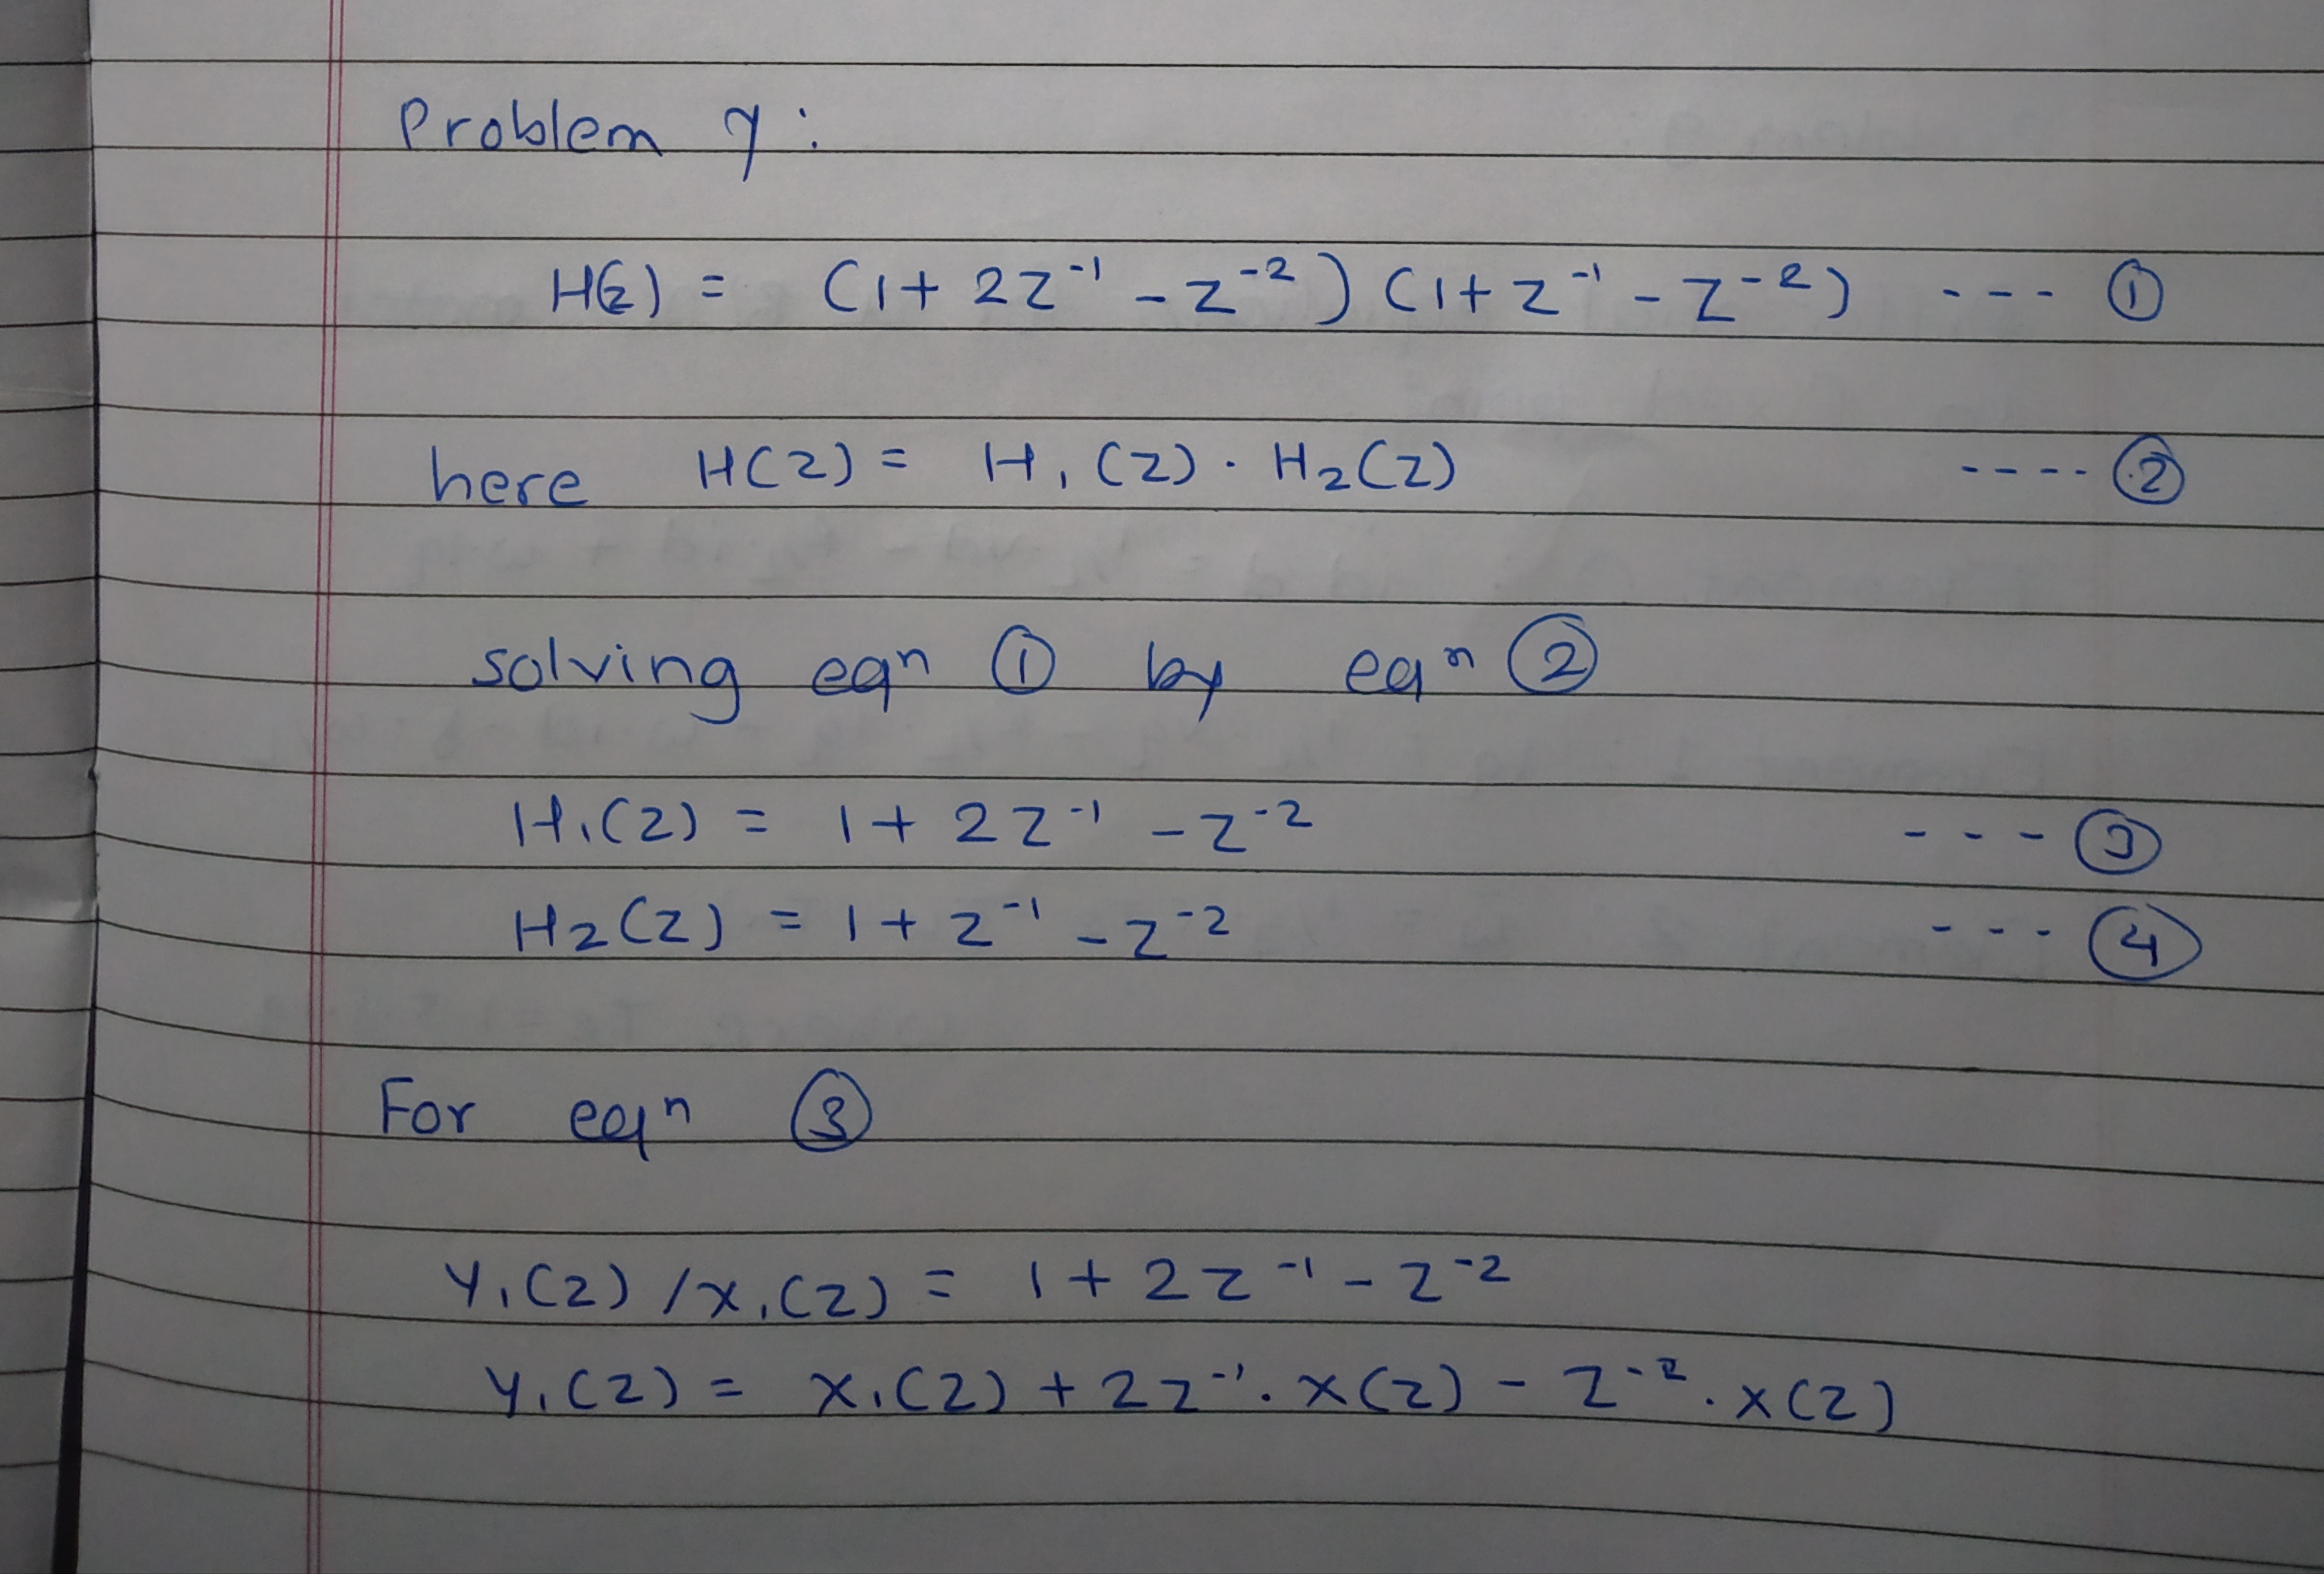 Problem 9:
H(z) = (1 + 2z⁻¹ - z⁻²) (1 + z⁻¹ - z⁻²) --- ①
here H(z) = H₁(z) · H₂(z) ---- ②
solving eqⁿ ① by eqⁿ ②
H₁(z) = 1 + 2z⁻¹ - z⁻² --- ③
H₂(z) = 1 + z⁻¹ - z⁻² --- ④
For eqⁿ ③
Y₁(z) / X₁(z) = 1 + 2z⁻¹ - z⁻²
Y₁(z) = X₁(z) + 2z⁻¹. X(z) - z⁻². X(z)